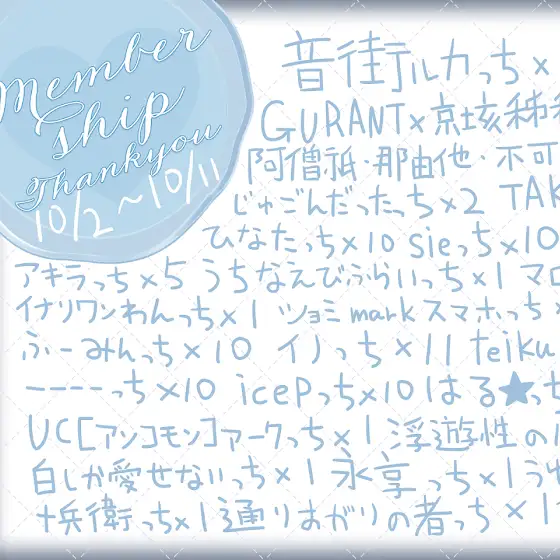 Member
ship
Thankyou
10/2~10/11
音街テルカっち×
GURANT×京垓秭
阿僧祇・那由他・不可
じゅごんだったっち×2 TAK
ひなたっち×10 sieっち×10
アキラっち×5 うちなえびふらいっち×1 マロ
イナリワンわんっち×1 ツョミmarkスマホっち
ふーみんっち×10 イノっち×11 teiku
ーーーーっち×10 icePっち×10 はる★っち
UC[アンコモン]アークっち×1 浮遊性の
白しか愛せないっち×1 永享っち×1 う
十兵衛っち×1 通りすがりの者っち×1